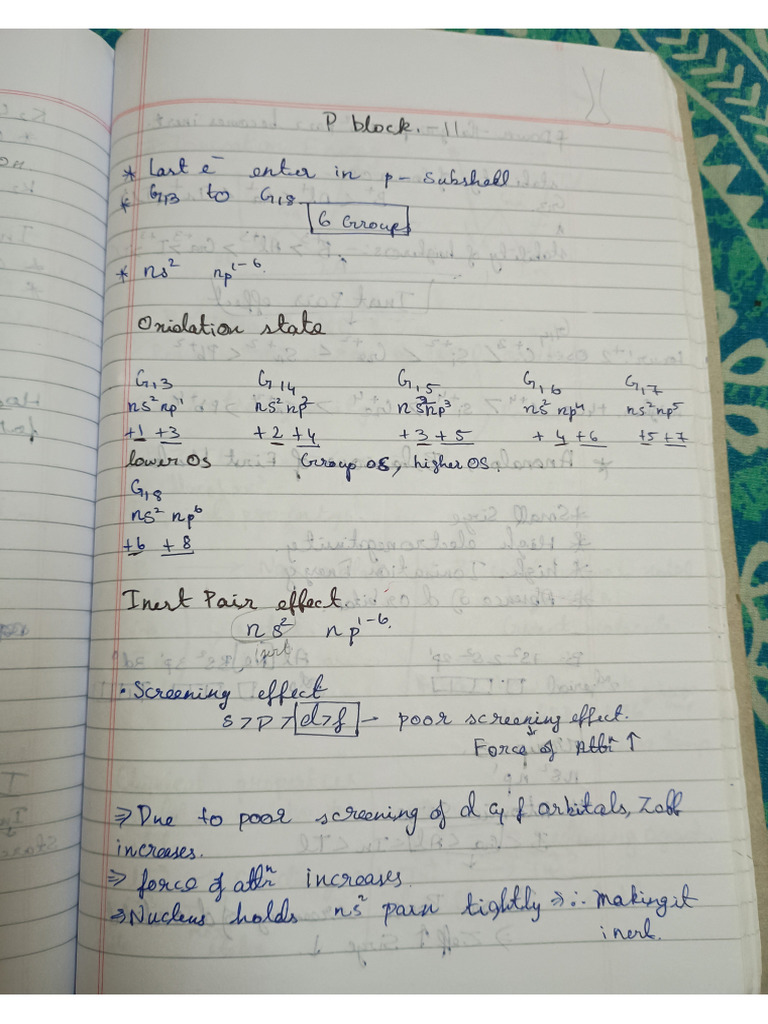 P block. - 11
* Last e⁻ enter in p - Subshell
* G13 to G18
6 Groups
* ns² np¹⁻⁶.
Oxidation state
G13 G14 G15 G16 G17
ns² np¹ ns² np² ns² np³ ns² np⁴ ns² np⁵
+1 +3 +2 +4 +3 +5 +4 +6 +5 +7
lower OS Group OS, higher OS.
G18
ns² np⁶
+6 +8
Inert Pair effect
ns² np¹⁻⁶.
inert
• Screening effect
s > p > d > f → poor screening effect.
Force of Attrⁿ ↑
⇒ Due to poor screening of d & f orbitals, Zeff
increases.
⇒ force of attrⁿ increases.
⇒ Nucleus holds ns² pair tightly ⇒ ∴ making it
inert.